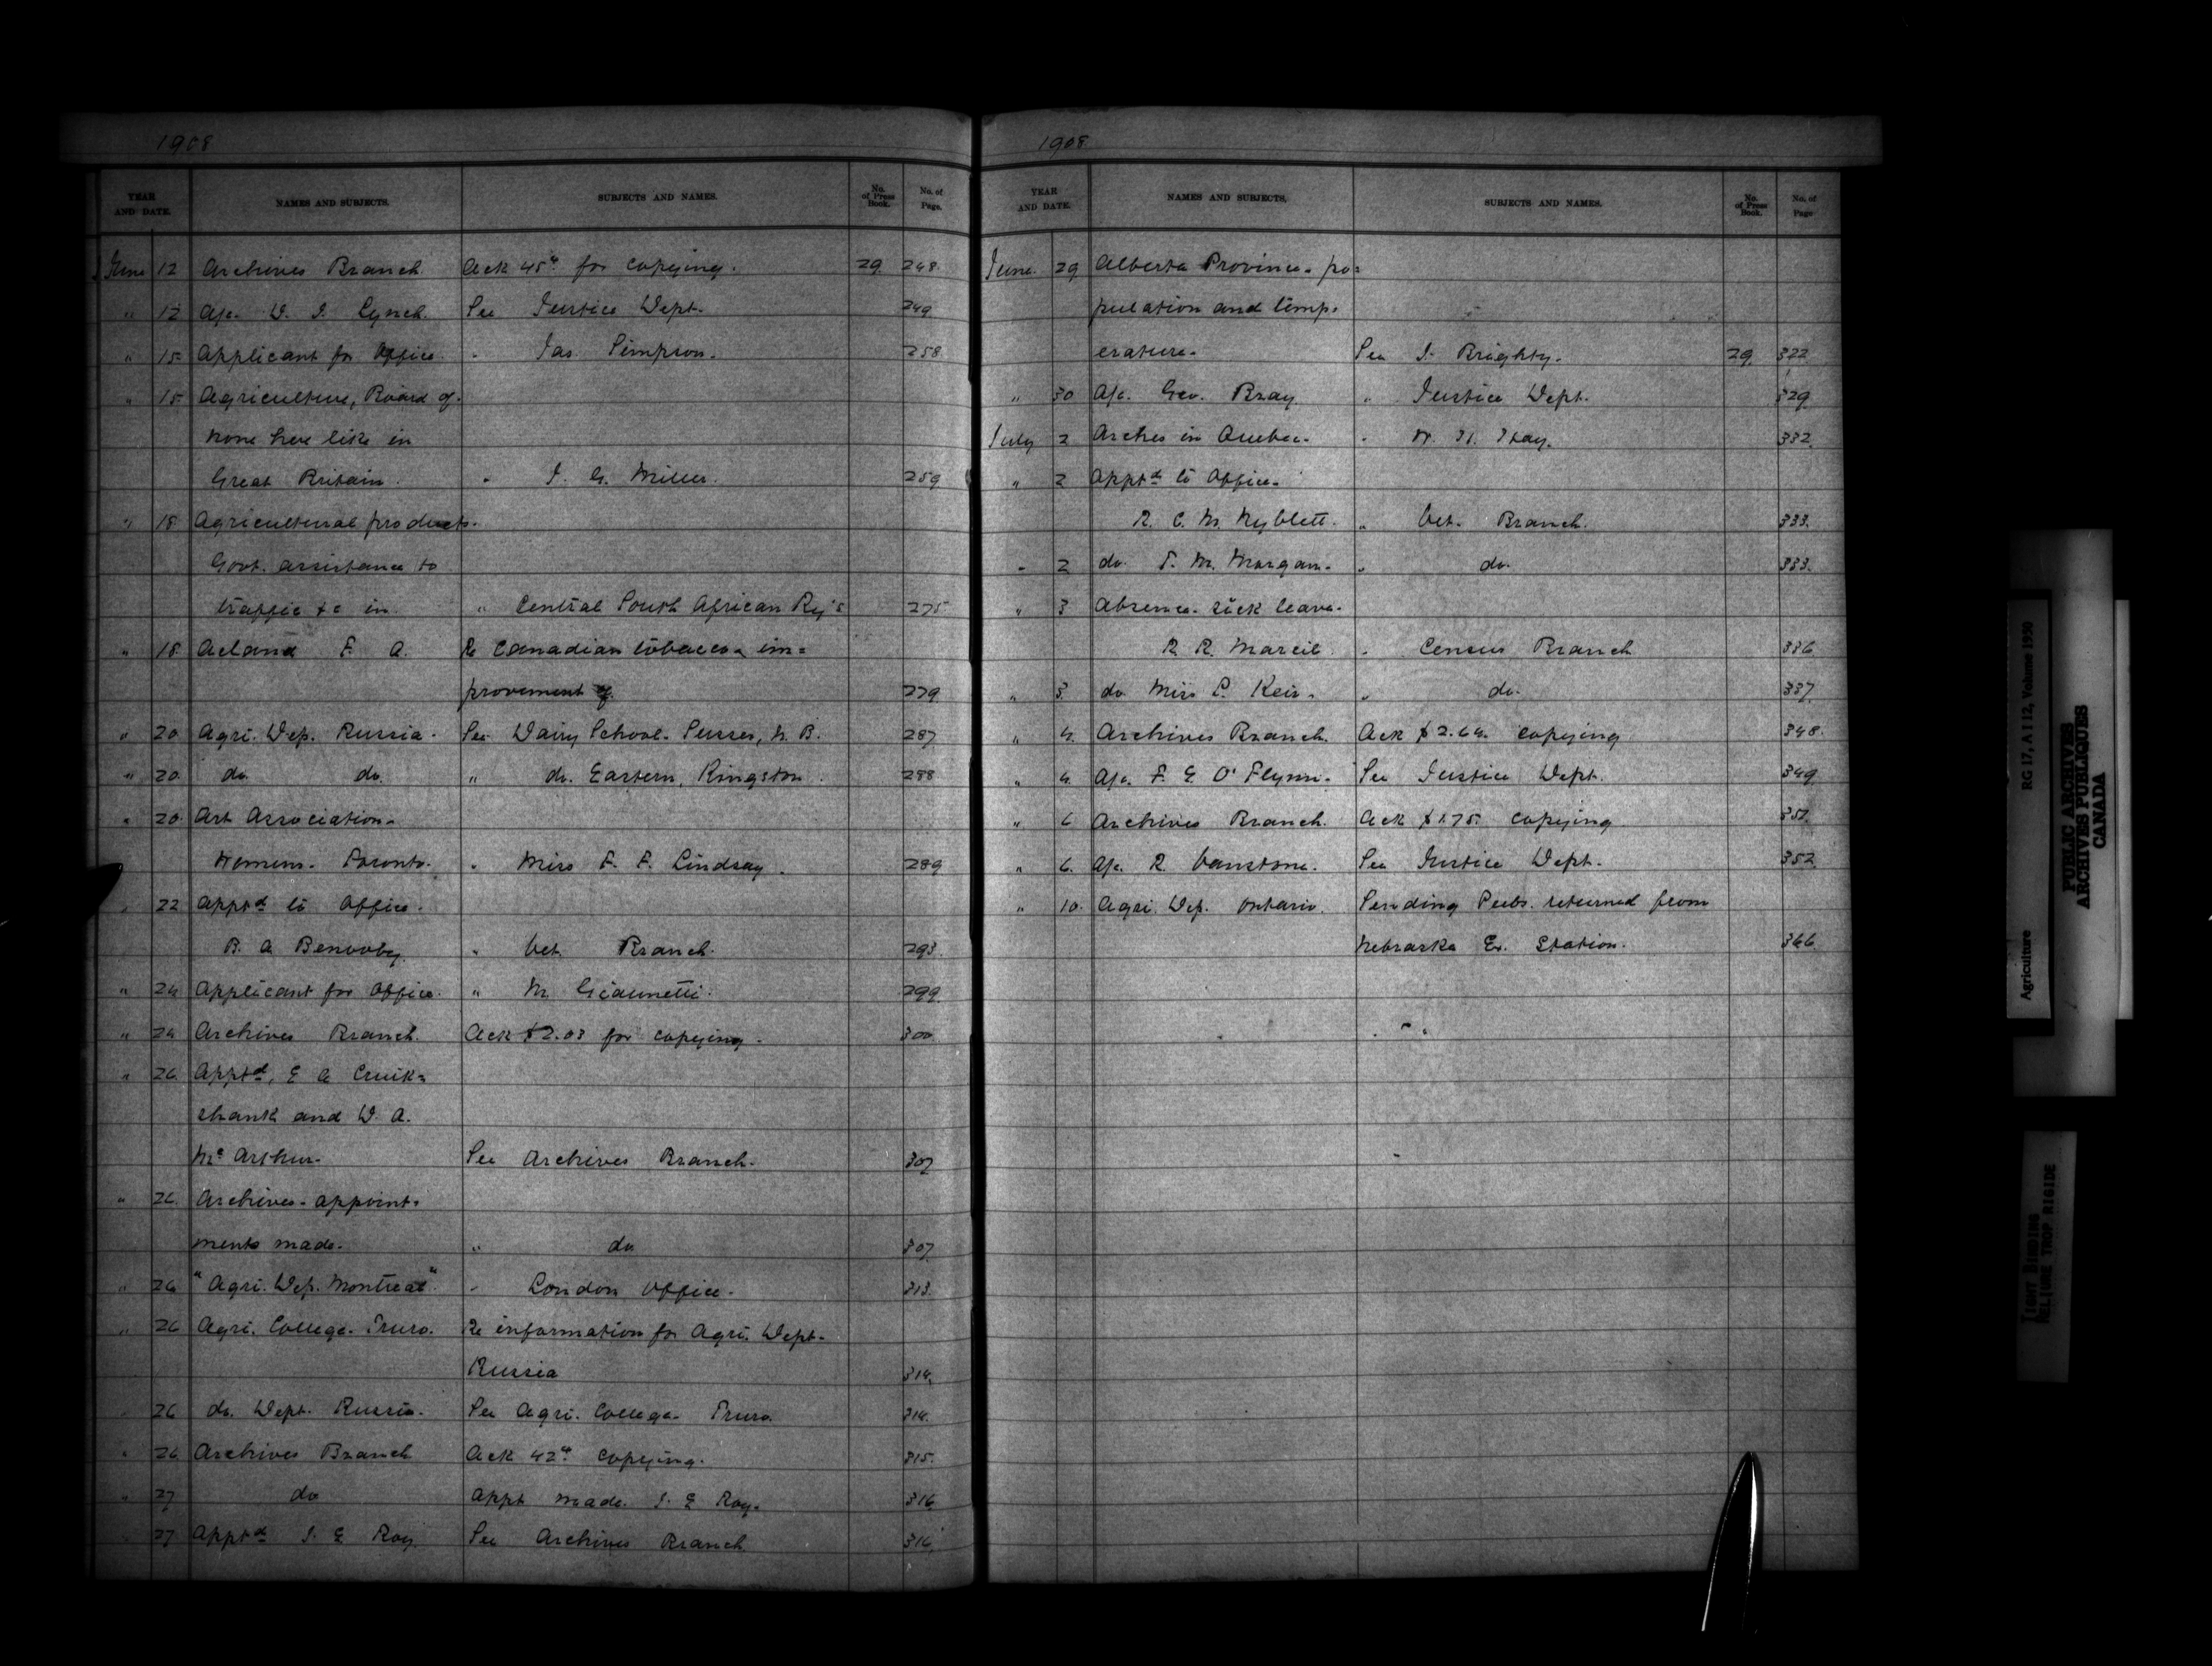 1908
YEAR AND DATE. NAMES AND SUBJECTS. SUBJECTS AND NAMES. No. of Press Book. No. of Page.
June 12 Archives Branch Ack 45¢ for copying. 29 248.
" 12 A/c. W. J. Lynch. See Justice Dept. 249
" 15 Applicant for Office. " Jas. Simpson. 258
" 15 Agriculture, Board of.
none here like in
Great Britain. " J. G. Miller. 259
" 18 Agricultural products.
Govt. assistance to
traffic &c in. " Central South African Ry's 275
" 18. Acland F. A. Re Canadian tobacco im=
provement of. 279
" 20 Agri. Dep. Russia. See Dairy School. Sussex, N. B. 287
" 20. do. do. " do. Eastern, Kingston. 288
" 20 Art Association.
Womens. Toronto. " Miss F. F. Lindsay. 289
" 22 Apptd to Office.
B. A. " Vet. Branch. 293.
" 24 Applicant for Office. " M. Giannetti. 299.
" 24 Archives Branch. Ack $2.03 for copying. 300
" 26. Apptd, E A Cruik=
shank and D. A.
Mc Arthur. See Archives Branch. 307
" 26. Archives. appoint=
ments made. " do 307
" 26 "Agri. Dep. Montreal". " London Office. 313.
" 26 Agri. College. Truro. Re information for Agri. Dept.
Russia 314.
26 do. Dept. Russia. See Agri. College. Truro 314.
" 26 Archives Branch Ack 42¢ copying. 315.
" 27 do Appt made. J. E Roy. 316
27 Apptd J. E Roy. See Archives Branch 316.
1908.
YEAR AND DATE. NAMES AND SUBJECTS. SUBJECTS AND NAMES. No. of Press Book. No. of Page
June. 29 Alberta Province. po=
pulation and temp=
erature. See J. Brighty. 29 322
" 30 A/c. Geo. Bray " Justice Dept. 329
July 2 Arches in Quebec. " 332.
" 2 Apptd to Office.
R. C. M. Nyblett. " Vet. Branch. 333.
" 2 do. T. M. Morgan. " do. 333.
" 3 Absence. sick leave.
R. R. Marcil " Census Branch 336
" 3. do Miss P. Keir. " do. 337
" 4. Archives Branch. Ack $2.64. copying 348.
" 4. A/c. F. E O'Flynn. See Justice Dept. 349
" 6 Archives Branch. Ack $1.75. copying 351.
" 6. A/c. R. Vanstone. See Justice Dept. 352
" 10. Agri. Dep. Ontario. Sending Pubs. returned from
Nebraska Ex. Station. 366
Agriculture RG 17, A I 12, Volume 1930
PUBLIC ARCHIVES
ARCHIVES PUBLIQUES
CANADA
TIGHT BINDING
RELIURE TROP RIGIDE